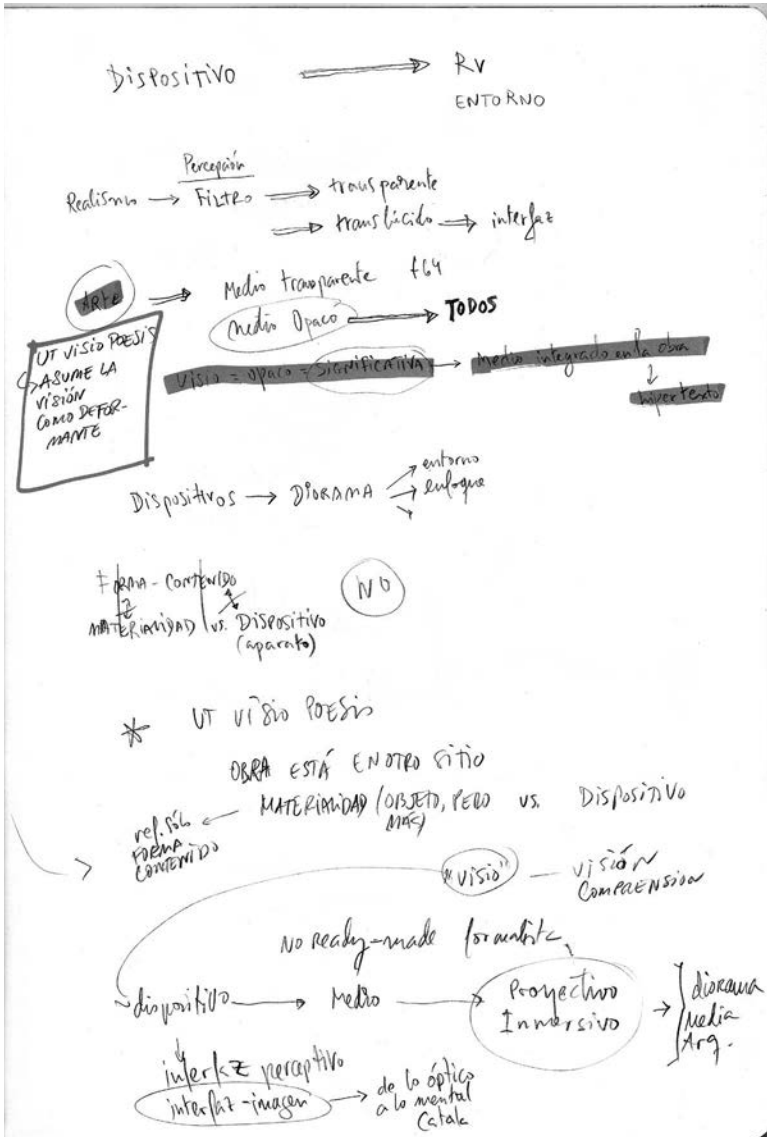 Dispositivo ⟹ RV
ENTORNO
Percepción
Realismo → FILTRO ⟹ transparente
⟹ translúcido ⟹ interfaz
ARTE ⟹ Medio transparente f64
Medio Opaco ⟹ TODOS
UT VISIO POESIS
ASUME LA
VISIÓN
COMO DEFOR-
MANTE
VISIO = OPACO = SIGNIFICATIVA → Medio integrado en la obra
↓
hipertexto
Dispositivos → DIORAMA → entorno
→ enfoque
→
FORMA - CONTENIDO
NO
MATERIALIDAD vs. Dispositivo
(aparato)
* UT VISIO POESIS
OBRA ESTÁ EN OTRO SITIO
MATERIALIDAD (OBJETO, PERO MÁS) vs. DISPOSITIVO
ref. sólo
FORMA
CONTENIDO
"VISIO" — VISIÓN
COMPRENSION
NO Ready-made formalista
dispositivo → Medio → Proyectivo
Inmersivo → } diorama
Media
Arq.
interfaz perceptivo
interfaz-imagen → de lo óptico
a lo mental
Catala